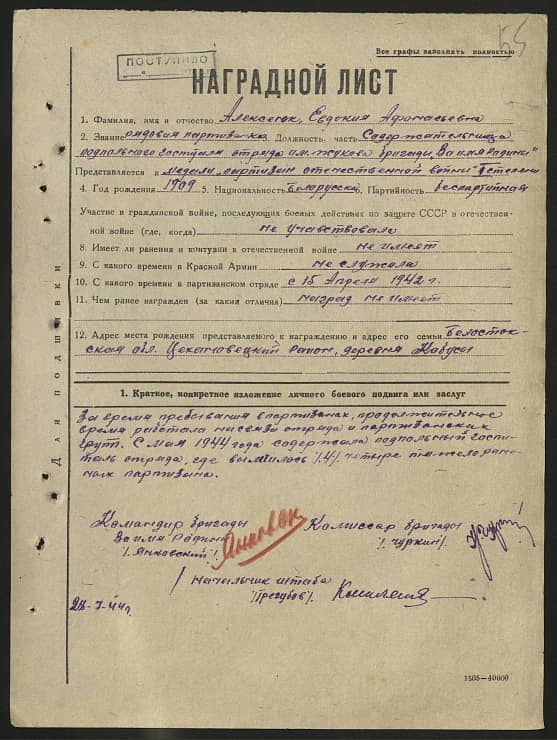 55
Все графы заполнять полностью
ПОСТУПИЛО
НАГРАДНОЙ ЛИСТ
1. Фамилия, имя и отчество Алексеюк, Евдокия Афонасьевна
2. Звание рядовая партизанка Должность, часть Содержательница
подпольного госпиталя отряда им. Жукова бригады "За имя Родины"
Представляется к медали "партизан отечественной войны" I степени
4. Год рождения 1909 5. Национальность Белорусска 6. Партийность беспартийная
Участие в гражданской войне, последующих боевых действиях по защите СССР в отечествен-
ной войне (где, когда) не учавствовала
8. Имеет ли ранения и контузии в отечественной войне не имеет
9. С какого времени в Красной Армии не служала
10. С какого времени в партизанском отряде с 15 Апреля 1942 г.
11. Чем ранее награжден (за какия отличия) наград не имеет
12. Адрес места рождения представляемого к награждению и адрес его семьи Белосток-
ская обл. Цехановецкий район, деревня
1. Краткое, конкретное изложение личного боевого подвига или заслуг
За время пребывания в партизанах, продолжительное
время работала на связи отряда и партизанских
групп. С мая 1944 года содержала подпольный госпи-
таль отряда, где вылечилось /4/ четыре тяжело ране-
ных партизана.
Командир бригады
За имя Родины
/Янковский/
Комиссар бригады
/Чуркин/
Начальник штаба
/Трегубов/
28-7-44 г.
Для подшивки
1505—40000